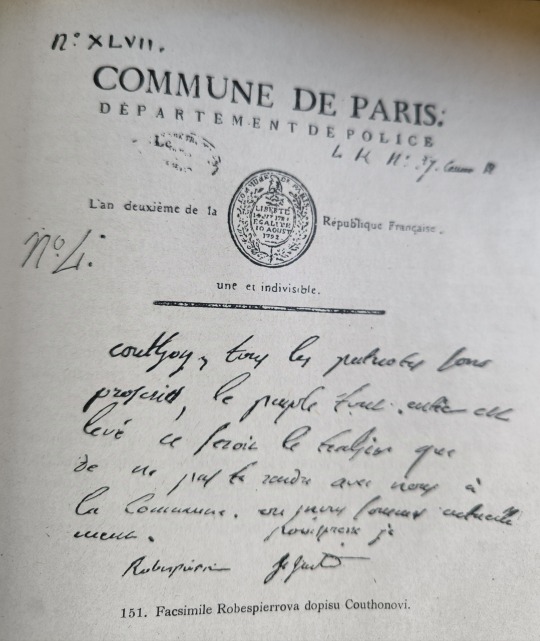 Nº XLVII.
COMMUNE DE PARIS.
DÉPARTEMENT DE POLICE
Nº 37
L'an deuxième de la
COMMUNE DE PARIS
LIBERTÉ
EGALITÉ
10 AOUST
1792
République Française.
Nº 4.
une et indivisible.
couthon, tous les patriotes sont
proscrits, le peuple tout entier est
levé ce seroit le trahir que
de ne pas te rendre avec nous à
la Commune. ou nous sommes actuelle
ment.
Robespierre
151. Facsimile Robespierrova dopisu Couthonovi.